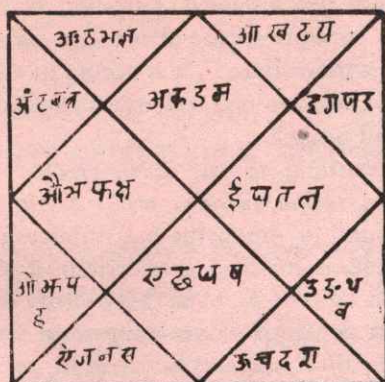 अःठभज्ञ
आ ख ट य
अंटबत्र
अकडम
इगणर
औञफक्ष
ई घ त ल
ओ झ प
ह
ए छ ध ष
उ ङ थ
व
ऐ ज न स
ऊ च द श